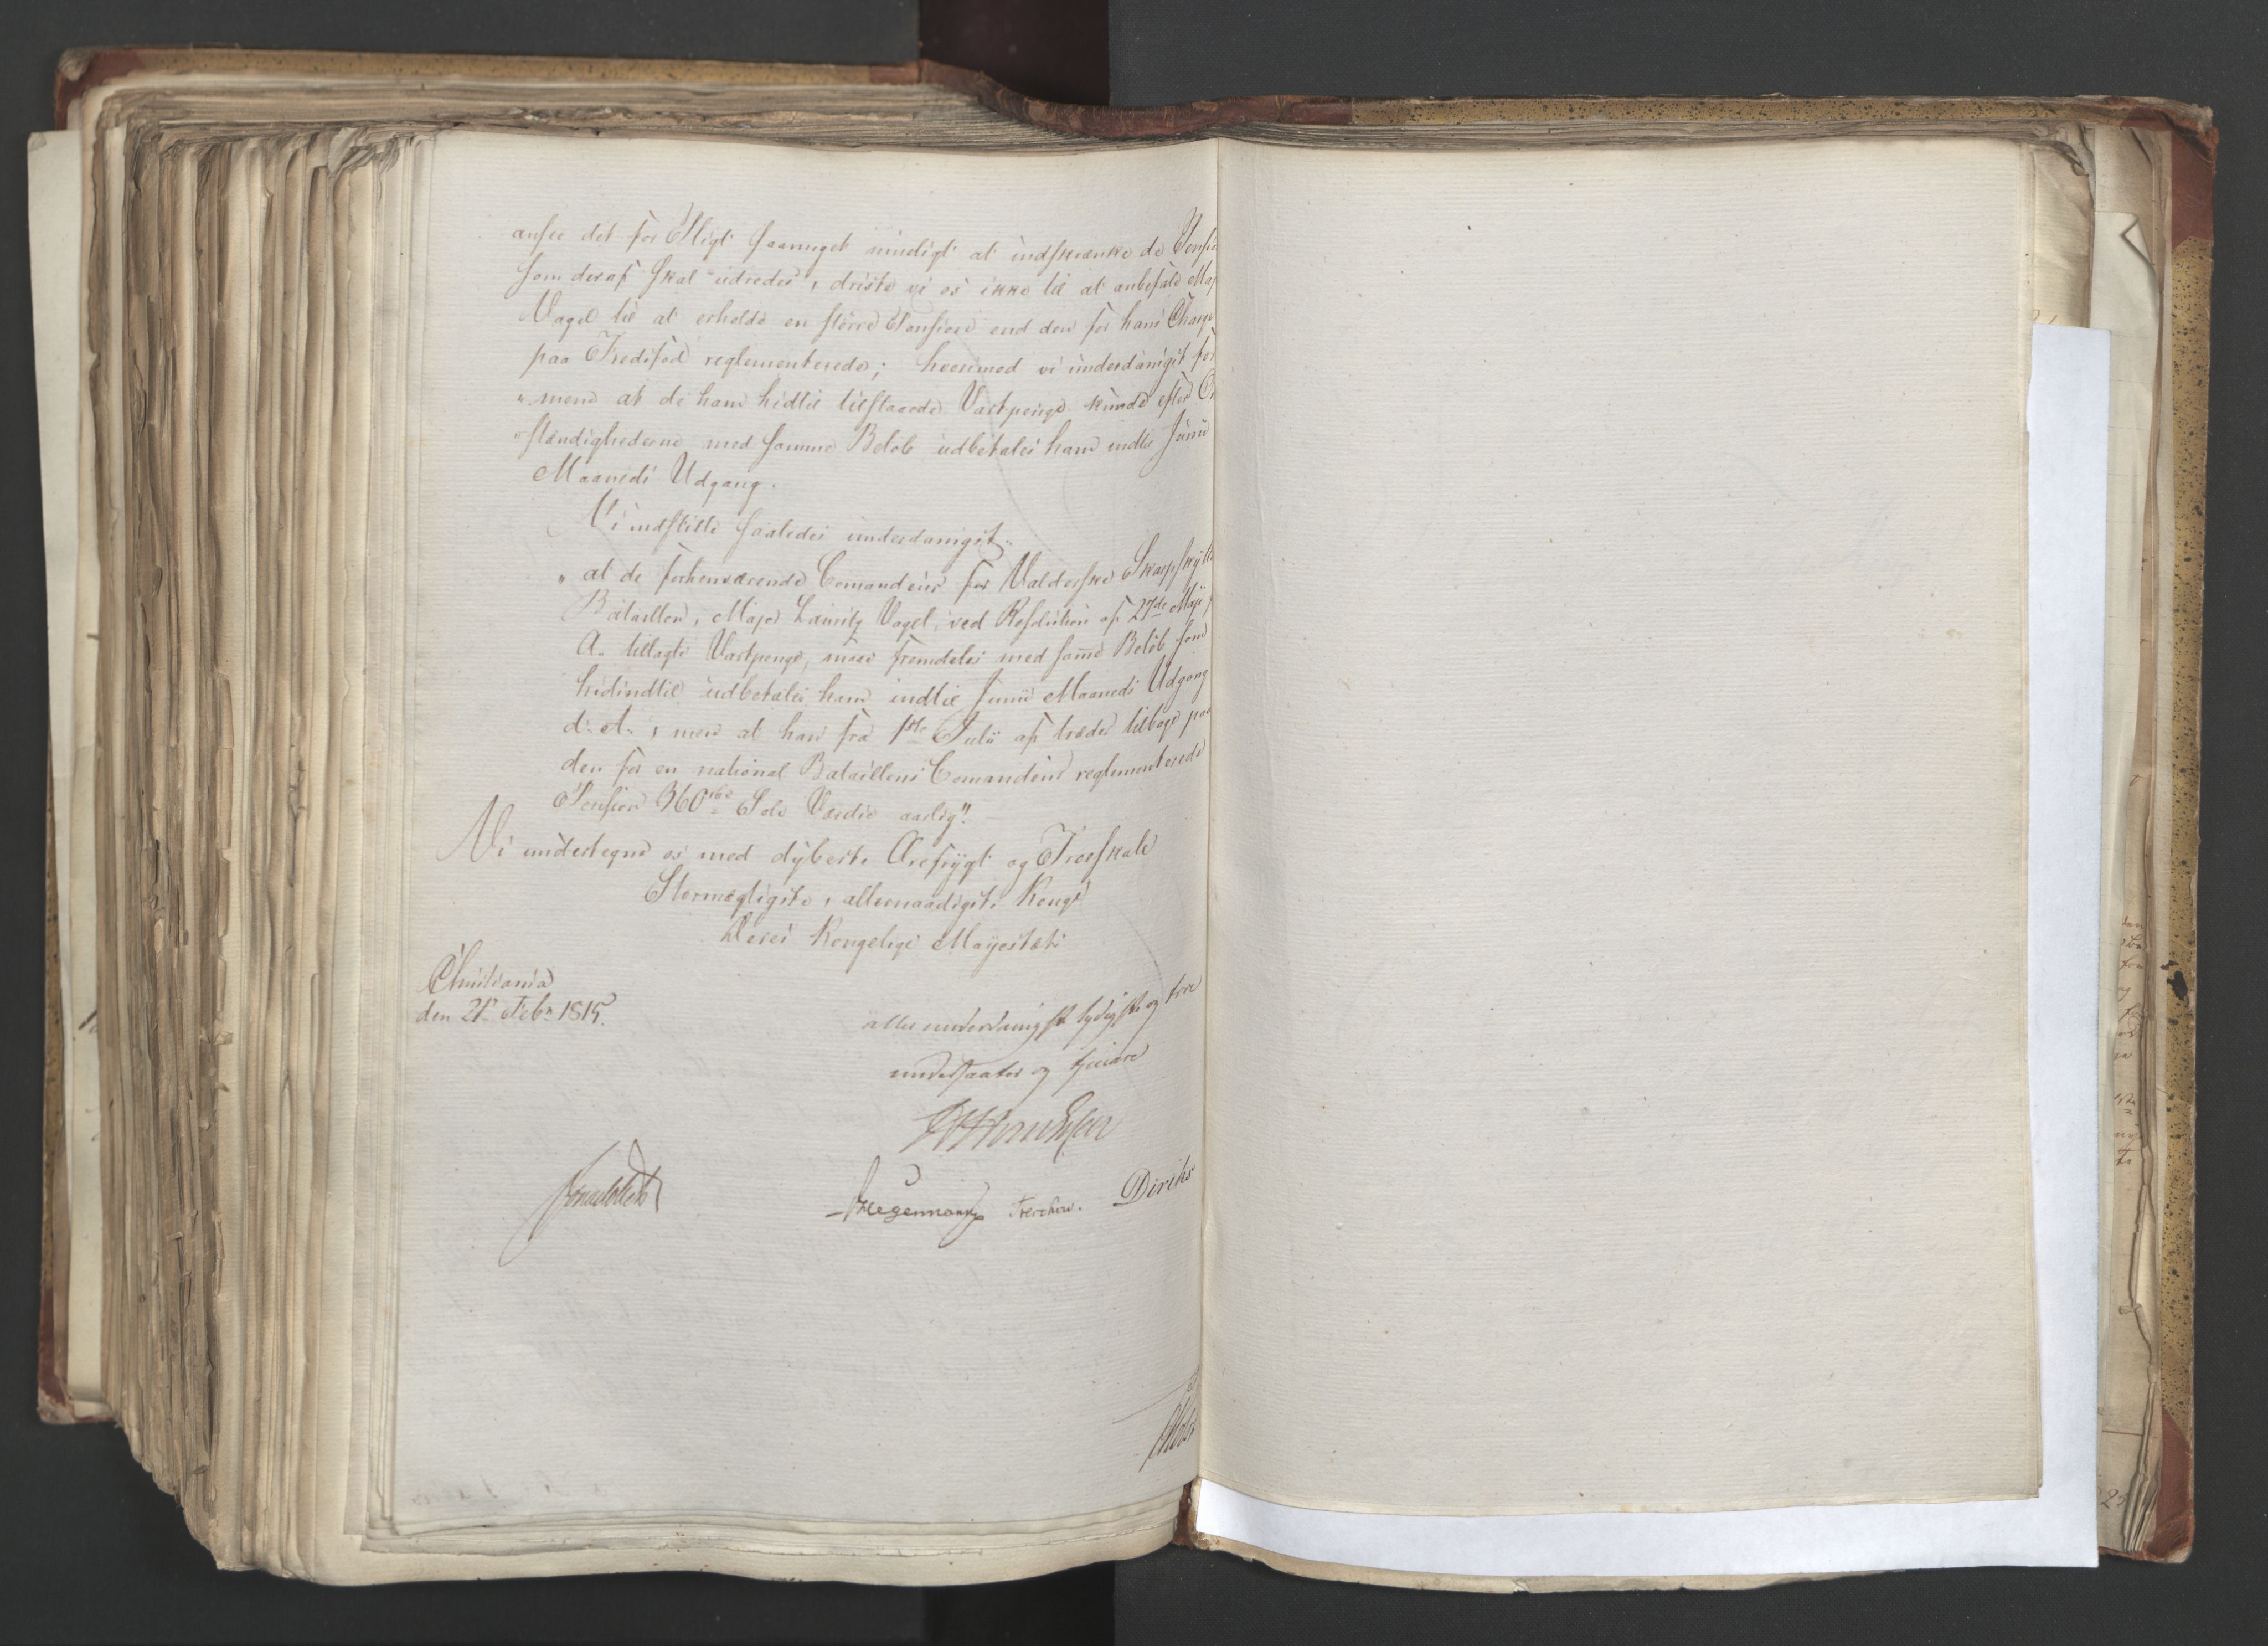 ansee det for Pligt saameget mueligt at indskrænke de Pensio
som deraf skal udredes, driste vi os ikke til at anbefale Maj
Vogel til at erholde en större Pension end den for hans Charge
paa Fredsfod reglementerede; hvorimod vi underdanigst for
"mene at de ham hidtil tilstaaede Vartpenge kunde efter O
"stændighederne med samme Belöb udbetales ham indtil Junii
Maaneds Udgang.
Vi indstille saaledes underdanigst:
"at de forhenværende Comandeur for Valderske Skarpskytte
Bataillon, Major Lauritz Vogel, ved Resolution af 27de Maji
A. tillagte Vartpenge, maae fremdeles med samme Belöb som
hidindtil udbetales ham indtil Junii Maaneds Udgang
d: A:, men at han fra 1ste Julii af træder tilbage paa
den for en national Bataillons Comandeur reglementerede
Pension 360 rbd Sölv Værdie aarlig".
Vi undertegne os med dybeste Ærefrygt og Troeskab
Stormægtigste, allernaadigste Konge
Deres Kongelige Mayestæts
Christiania
den 21 Febr 1815.
allerunderdanigste lydigste og troe
undersaatter og tjenere
Sommerhielm
Hegermann Treschow. Diriks